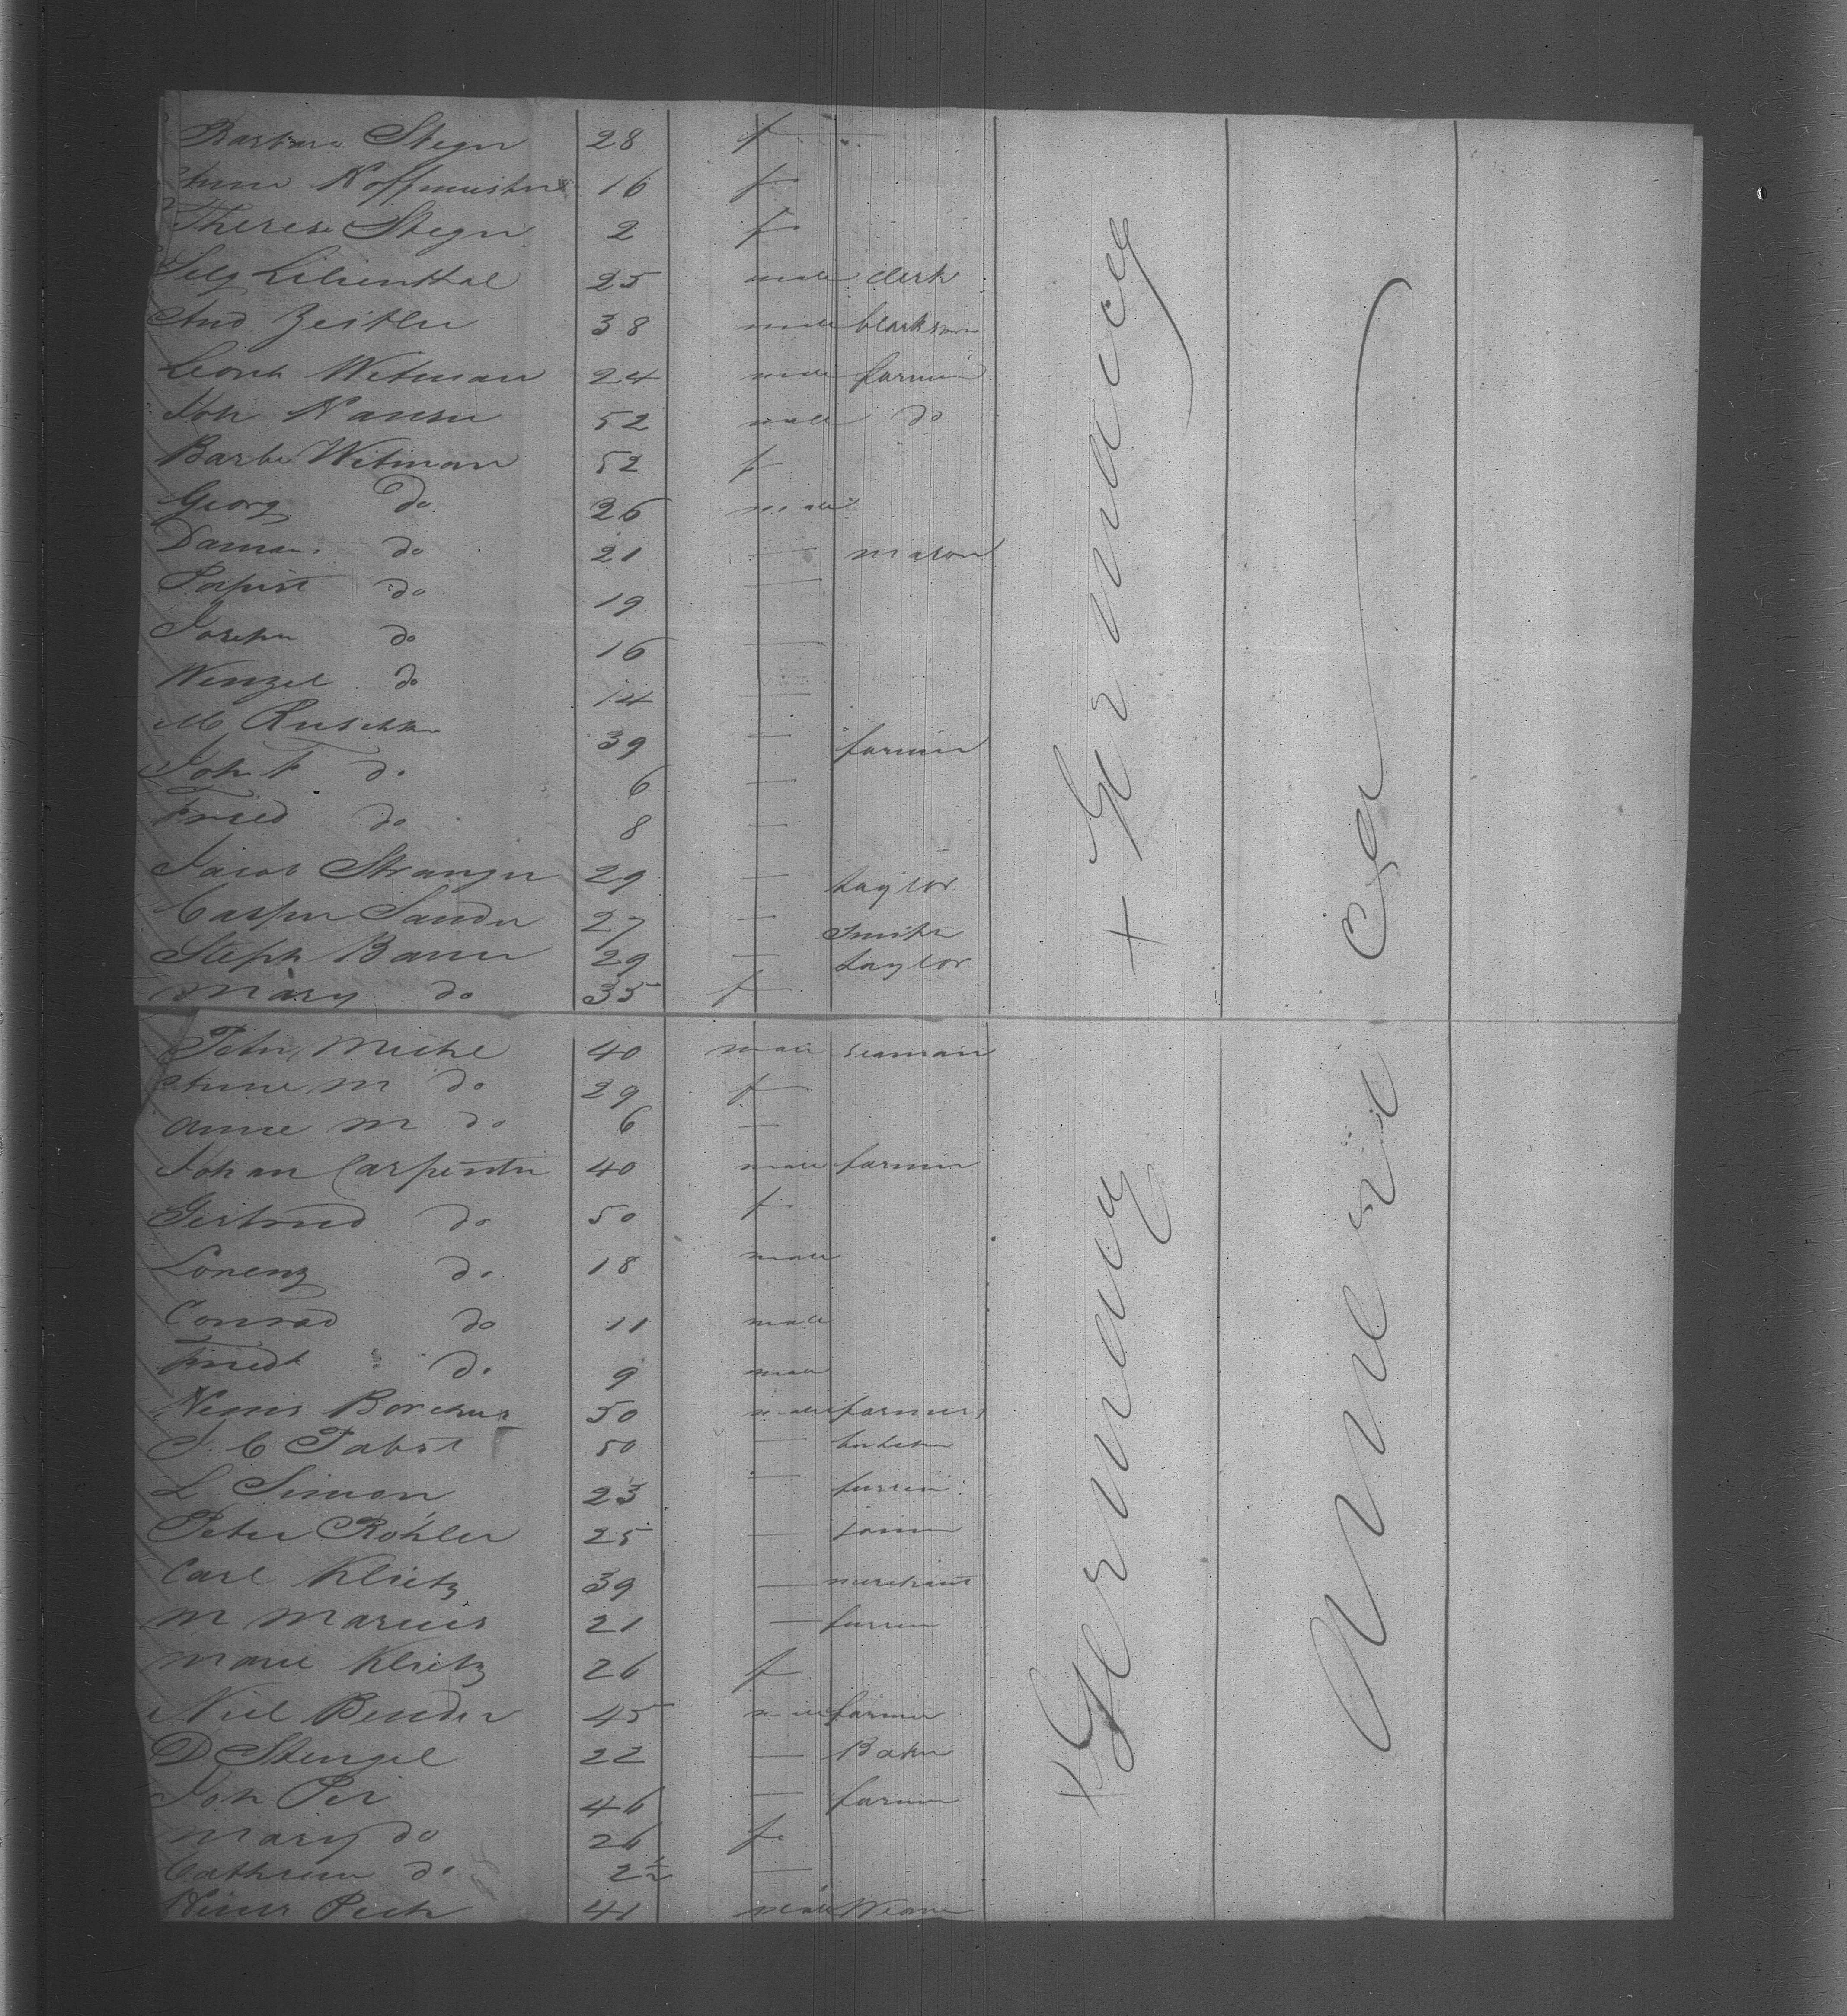 Barbara Steger 28 f
Anna Hoffmeister 16 f
Therese Steger 2 f
Selg Lilienthal 25 male clerk
And Zeitler 38 male blacksm
Witman 24 male farmer
Joh Hansen 52 male do
Barbe Witman 52 f
Georg do 26 male
Damian do 21 — mason
do 19 —
Joseph do 16 —
Wenzel do 14 —
M 39 — farmer
Joh F do 6 —
Fried do 8 —
Jacob Stranger 29 — taylor
Casper Sander 27 — Smith
Steph Bauer 29 — taylor
Mary do 35 f
Germany
Peter Michel 40 male seaman
Anne M do 29 f
Anne M do 6 —
Johan Carpenter 40 male farmer
Gertrud do 50 f
Lorenz do 18 male
Conrad do 11 male
Friedr do 9 male
Borchers 50 male farmer
J. C Pabst 50 —
L Simon 23 — farmer
Peter Köhler 25 — farmer
Carl Klietz 39 — merchant
M Marcus 21 — farmer
Marie Klietz 26 f
Niel Bender 45 male farmer
D Stengel 22 — Baker
Joh Per 46 — farmer
Mary do 26 f
Cathrina do 2½ —
41 male Weaver
+ Germany
America